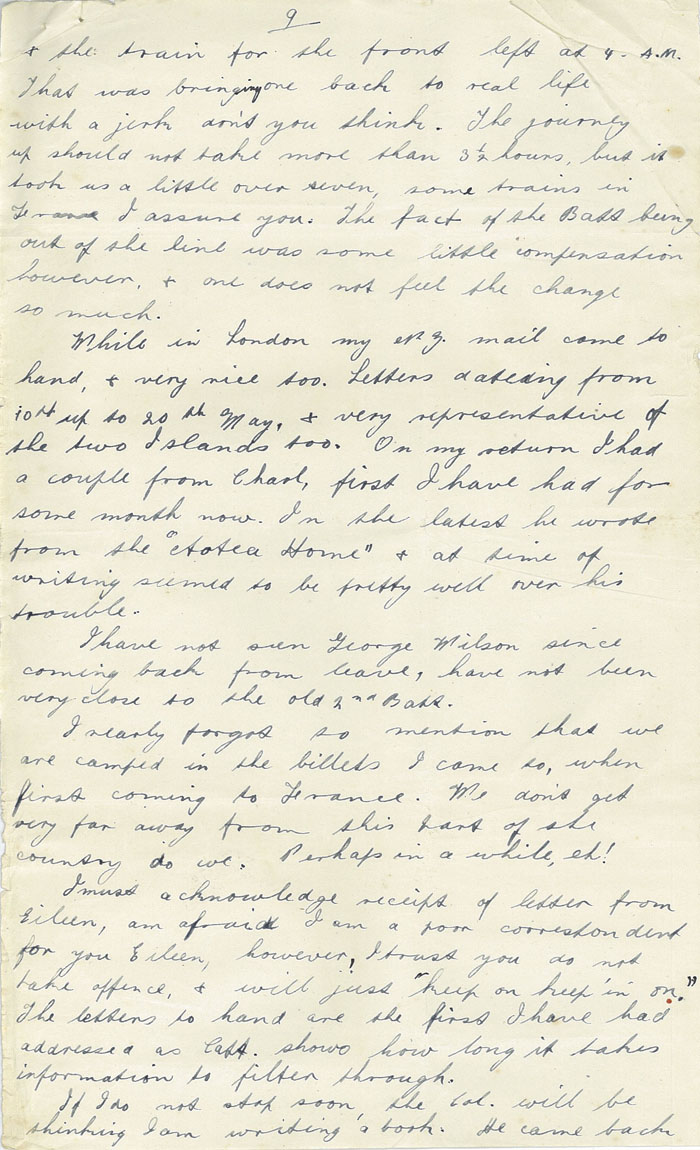 9
& the train for the front left at 4. A.M.
That was bringing one back to real life
with a jerk don't you think. The journey
up should not take more than 3½ hours, but it
took us a little over seven, some trains in
France I assure you. The fact of the Batt being
out of the line was some little compensation
however, & one does not feel the change
so much.
While in London my N.Z. mail came to
hand, & very nice too. Letters dateing from
10th up to 20th May, & very representative of
the two Islands too. On my return I had
a couple from Charl, first I have had for
some month now. In the latest he wrote
from the "Aotea Home" & at time of
writing seemed to be pretty well over his
trouble.
I have not seen George Wilson since
coming back from leave, have not been
very close to the old 2nd Batt.
I nearly forgot to mention that we
are camped in the billets I came to, when
first coming to France. We don't get
very far away from this part of the
country do we. Perhaps in a while, eh!
I must acknowledge receipt of letter from
Eileen, am afraid I am a poor correspondent
for you Eileen, however, I trust you do not
take offence, & will just "keep on keep'in on."
The letters to hand are the first I have had
addressed as Capt. shows how long it takes
information to filter through.
If I do not stop soon, the Col. will be
thinking I am writing a book. He came back